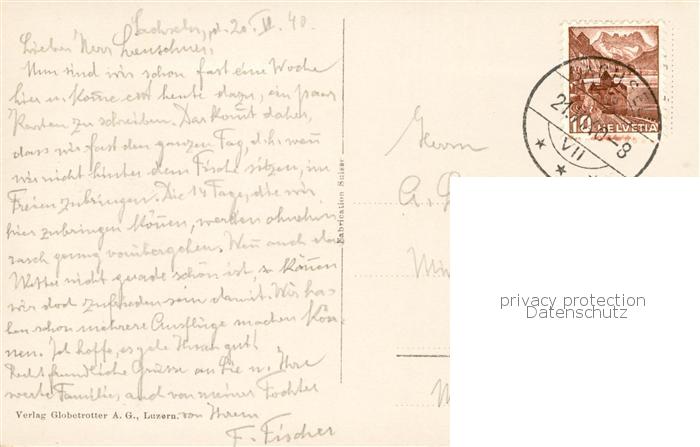 Sachseln, d. 20. VI. 40.
Lieber Herr
Nun sind wir schon fast eine Woche
hier u. komme erst heute dazu, ein paar
Karten zu schreiben. Das kommt daher,
dass wir fast den ganzen Tag, d.h. wenn
wir nicht hinter dem Tische sitzen, im
Freien zubringen. Die 14 Tage, die wir
hier zubringen können, werden ohnehin
rasch genug vorübergehen. Wenn auch das
Wetter nicht gerade schön ist, so können
wir doch zufrieden sein damit. Wir ha-
ben schon mehrere Ausflüge machen kön-
nen. Ich hoffe, es gehe Ihnen gut!
Recht freundliche Grüsse an Sie u. Ihre
werte Familie, und von meiner Tochter
von Ihrem
F. Fischer
Verlag Globetrotter A. G., Luzern.
Fabrication Suisse
Herrn
A.
10 HELVETIA
21. -8
VII
privacy protection
Datenschutz